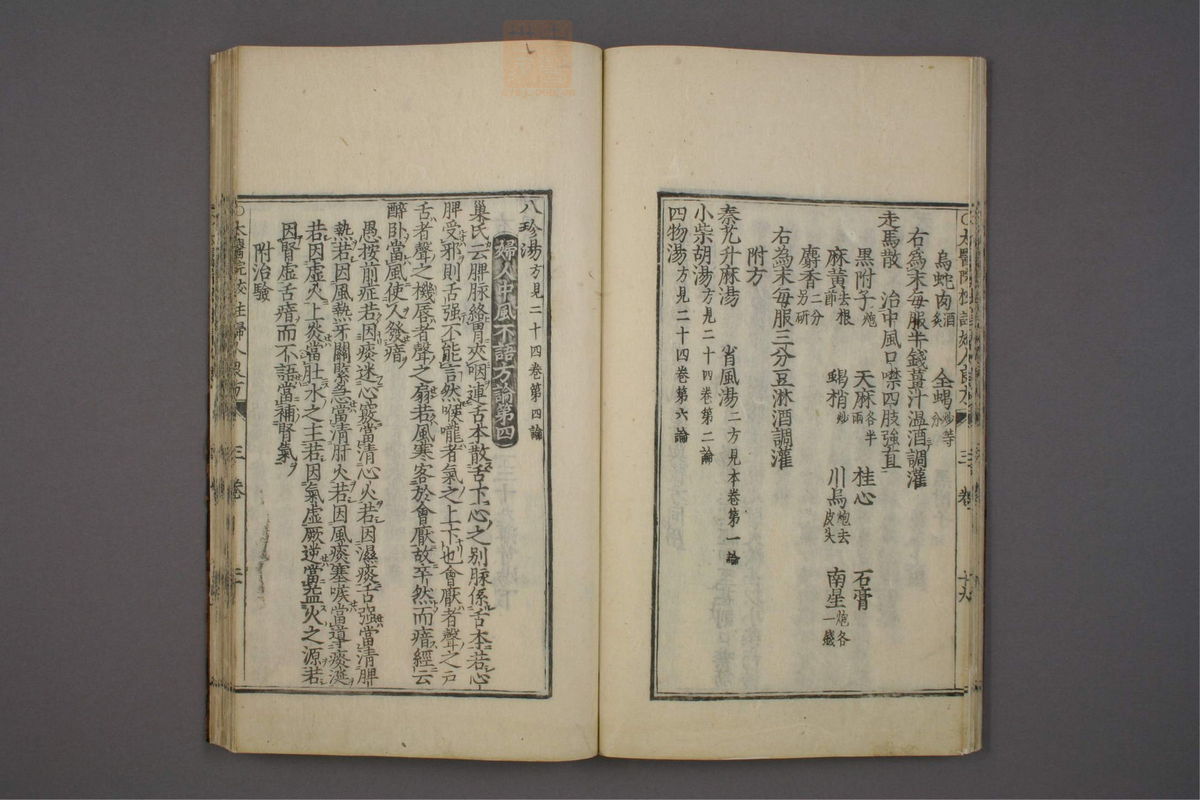 烏蛇肉酒炙 全蝎炒等分
右為末每服半錢薑汁溫酒調灌
走馬散 治中風口噤四肢強直
黒附子炮 天麻各半兩 桂心 石膏
麻黃去根節 蝎梢炒 川烏炮去皮尖 南星炮各一錢
麝香二分另研
右為末每服三分豆淋酒調灌
附方
秦艽升麻湯 省風湯二方見本卷第一論
小柴胡湯方見二十四卷第二論
四物湯方見二十四卷第六論
八珍湯方見二十四卷第四論
婦人中風不語方論第四
巢氏云脾脉絡胃夾咽連舌本散舌下心之別脉係舌本若心
脾受邪則舌强不能言然喉嚨者氣之上下也會厭者聲之戸
舌者聲之機唇者聲之扇若風寒客於會厭故卒然而瘖經云
醉卧當風使人發瘖
愚按前症若因痰迷心竅當清心火若因濕痰舌强當清脾
熱若因風熱牙關緊急當清肝火若因風痰塞喉當導痰涎
若因虛火上炎當壯水之主若因氣虛厥逆當益火之源若
因腎虛舌瘖而不語當補腎氣
附治驗
○太醫院校註婦人良方 三卷 二十